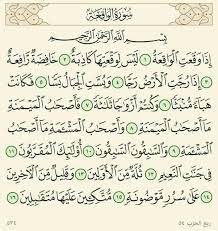 سُورَةُ الوَاقِعَةِ
بِسْمِ اللَّهِ الرَّحْمَٰنِ الرَّحِيمِ
إِذَا وَقَعَتِ الْوَاقِعَةُ ١ لَيْسَ لِوَقْعَتِهَا كَاذِبَةٌ ٢ خَافِضَةٌ رَّافِعَةٌ
٣ إِذَا رُجَّتِ الْأَرْضُ رَجًّا ٤ وَبُسَّتِ الْجِبَالُ بَسًّا ٥ فَكَانَتْ
هَبَاءً مُّنۢبَثًّا ٦ وَكُنتُمْ أَزْوَاجًا ثَلَاثَةً ٧ فَأَصْحَابُ الْمَيْمَنَةِ
مَا أَصْحَابُ الْمَيْمَنَةِ ٨ وَأَصْحَابُ الْمَشْأَمَةِ مَا أَصْحَابُ
الْمَشْأَمَةِ ٩ وَالسَّابِقُونَ السَّابِقُونَ ١٠ أُولَٰئِكَ الْمُقَرَّبُونَ ١١
فِي جَنَّاتِ النَّعِيمِ ١٢ ثُلَّةٌ مِّنَ الْأَوَّلِينَ ١٣ وَقَلِيلٌ مِّنَ الْآخِرِينَ
١٤ عَلَىٰ سُرُرٍ مَّوْضُونَةٍ ١٥ مُّتَّكِئِينَ عَلَيْهَا مُتَقَابِلِينَ ١٦
ربع الحزب ٥٤
٥٣٤